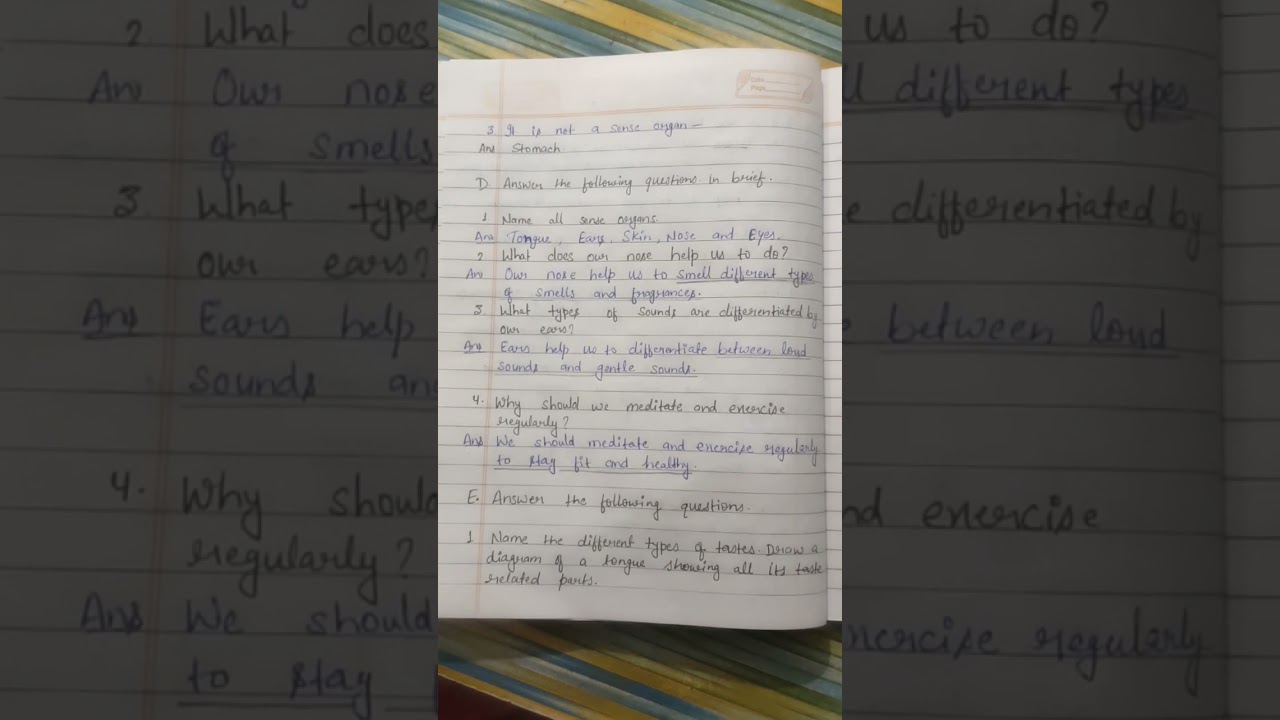 Date
Page
3 It is not a sense organ —
Ans Stomach.
D. Answer the following questions in brief.
1 Name all sense organs.
Ans Tongue, Ears, Skin, Nose and Eyes.
2 What does our nose help us to do?
Ans Our nose help us to smell different types
of smells and fragrances.
3 What types of sounds are differentiated by
our ears?
Ans Ears help us to differentiate between loud
sounds and gentle sounds.
4. Why should we meditate and exercise
regularly?
Ans We should meditate and exercise regularly
to stay fit and healthy.
E. Answer the following questions.
1 Name the different types of tastes. Draw a
diagram of a tongue showing all its taste
related parts.